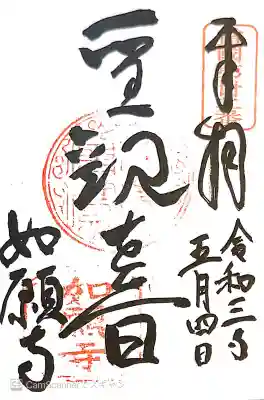 奉拝
令和三年
五月四日
聖観音
如願寺
CamScanner でスキャン